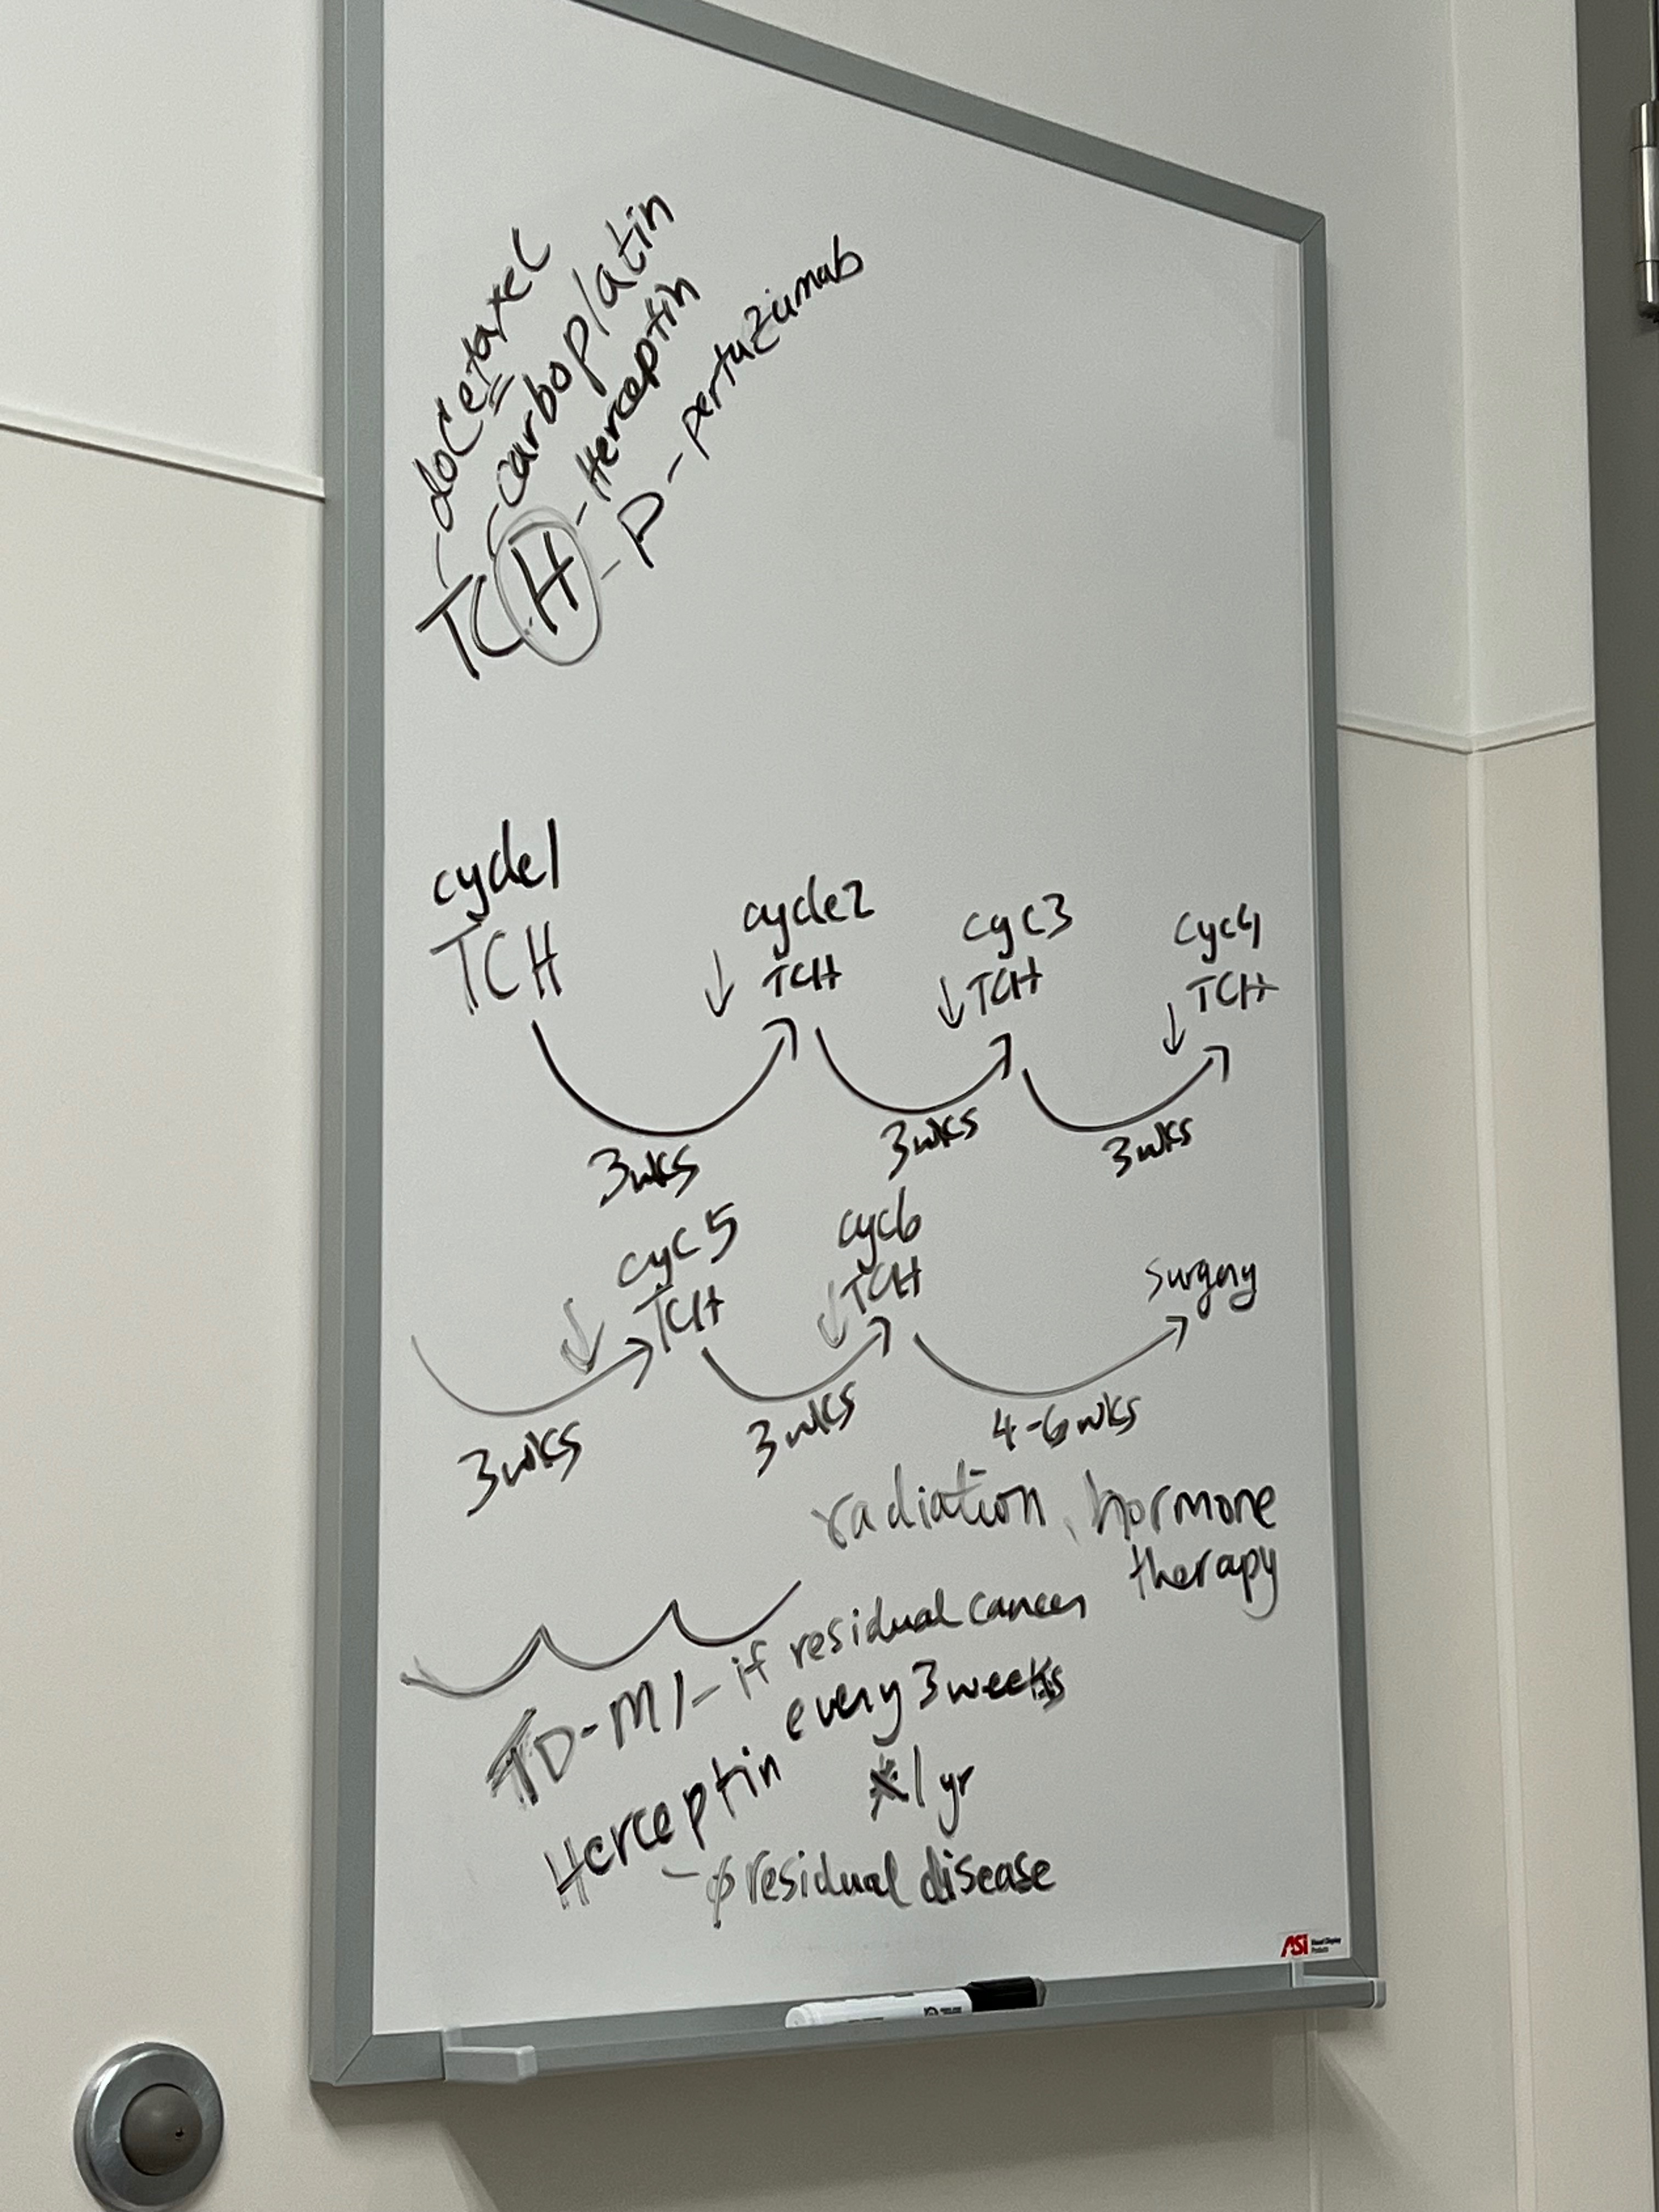 docetaxel
carboplatin
Herceptin
P - pertuzumab
TCH
cycle1
TCH
cycle2
TCH
cyc3
TCH
cyc4
TCH
3wks
3wks
3wks
cyc5
TCH
cyc6
TCH
surgery
3wks
3wks
4-6wks
radiation, hormone
therapy
TD-M1 - if residual cancer
Herceptin every 3 weeks
x1yr
- ϕ residual disease
ASI